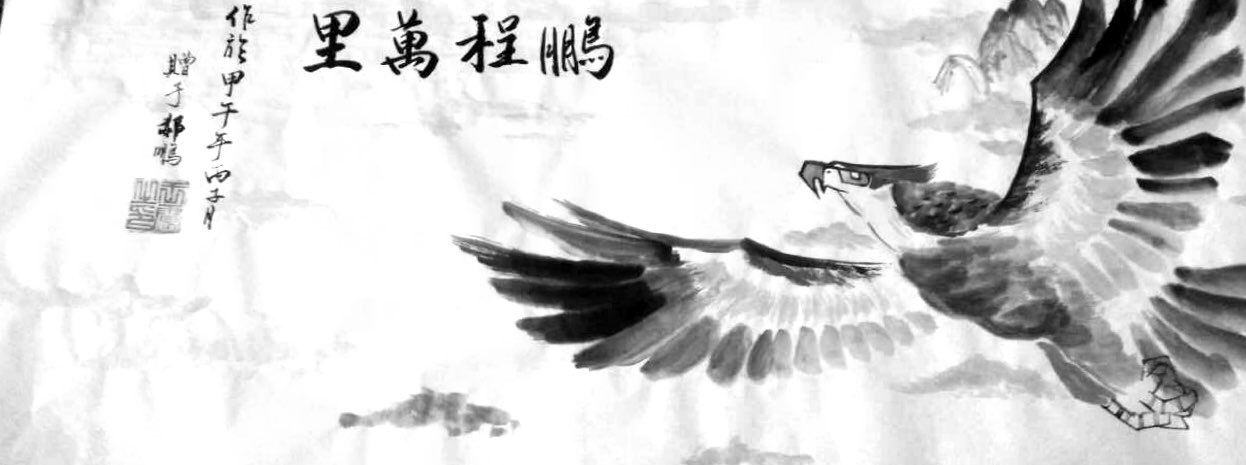 鵬程萬里
作於甲午年丙子月
贈于郝鵬